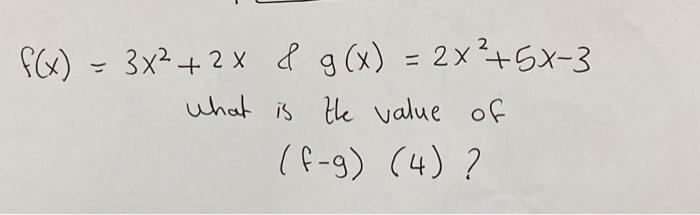 f(x) = 3x² + 2x & g(x) = 2x²+5x-3
what is the value of
(f-g) (4) ?